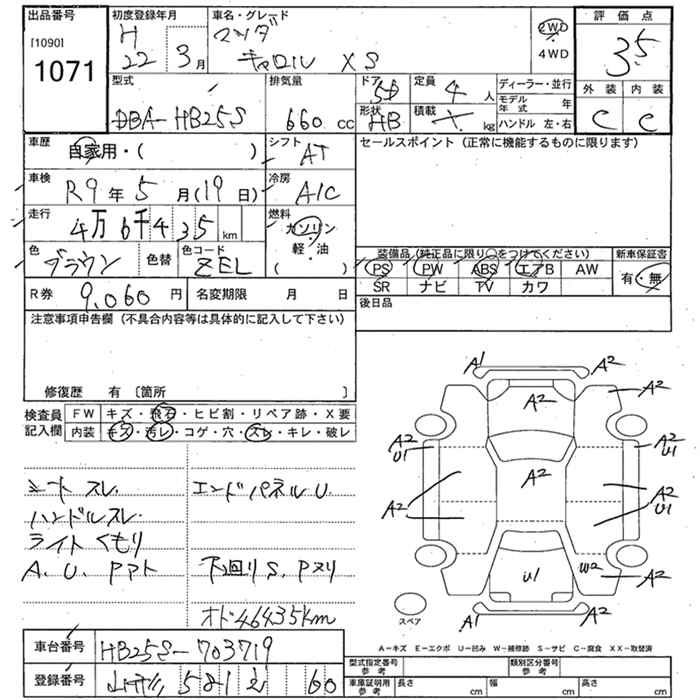 出品番号
[1090]
1071
初度登録年月
H
22 年 3 月
車名・グレード
マツダ
キャロル XS
2WD
4WD
評価点
3.5
外装 内装
C C
型式
DBA-HB25S
排気量
660 cc
ドア
5D
形状
HB
定員
4 人
積載
kg
ディーラー・並行
モデル年式 年
ハンドル 左・右
車歴
自家用・( )
シフト
AT
車検
R9 年 5 月(19 日)
冷房
A/C
走行
4万6千435 km
燃料
ガソリン
軽・油
( )
色
ブラウン
色替
色コード
ZEL
セールスポイント(正常に機能するものに限ります)
装備品(純正品に限り○をつけてください)
PS PW ABS エアB AW
SR ナビ TV カワ
新車保証書
有・無
R券 9,060 円
名変期限 月 日
後日品
注意事項申告欄(不具合内容等は具体的に記入して下さい)
修復歴 有 〔箇所 〕
検査員記入欄
FW キズ・飛石・ヒビ割・リペア跡・X要
内装 キズ・汚レ・コゲ・穴・スレ・キレ・破レ
シートスレ
ハンドルスレ
ライトくもり
A、U、Pアト
エンドパネルU
下回りS、Pヌリ
オド46435km
A1 A2
A2 A2
A2 U1
A2 U1
A2
A2
A2 U1
U1
W2
A2
A1 A2
スペア
A-キズ E-エクボ U-凹み W-補修跡 S-サビ C-腐食 XX-取替済
車台番号 HB25S-703719
登録番号 581 60
型式指定番号 参考
類別区分番号 参考
車庫証明用 参考
長さ cm
幅 cm
高さ cm